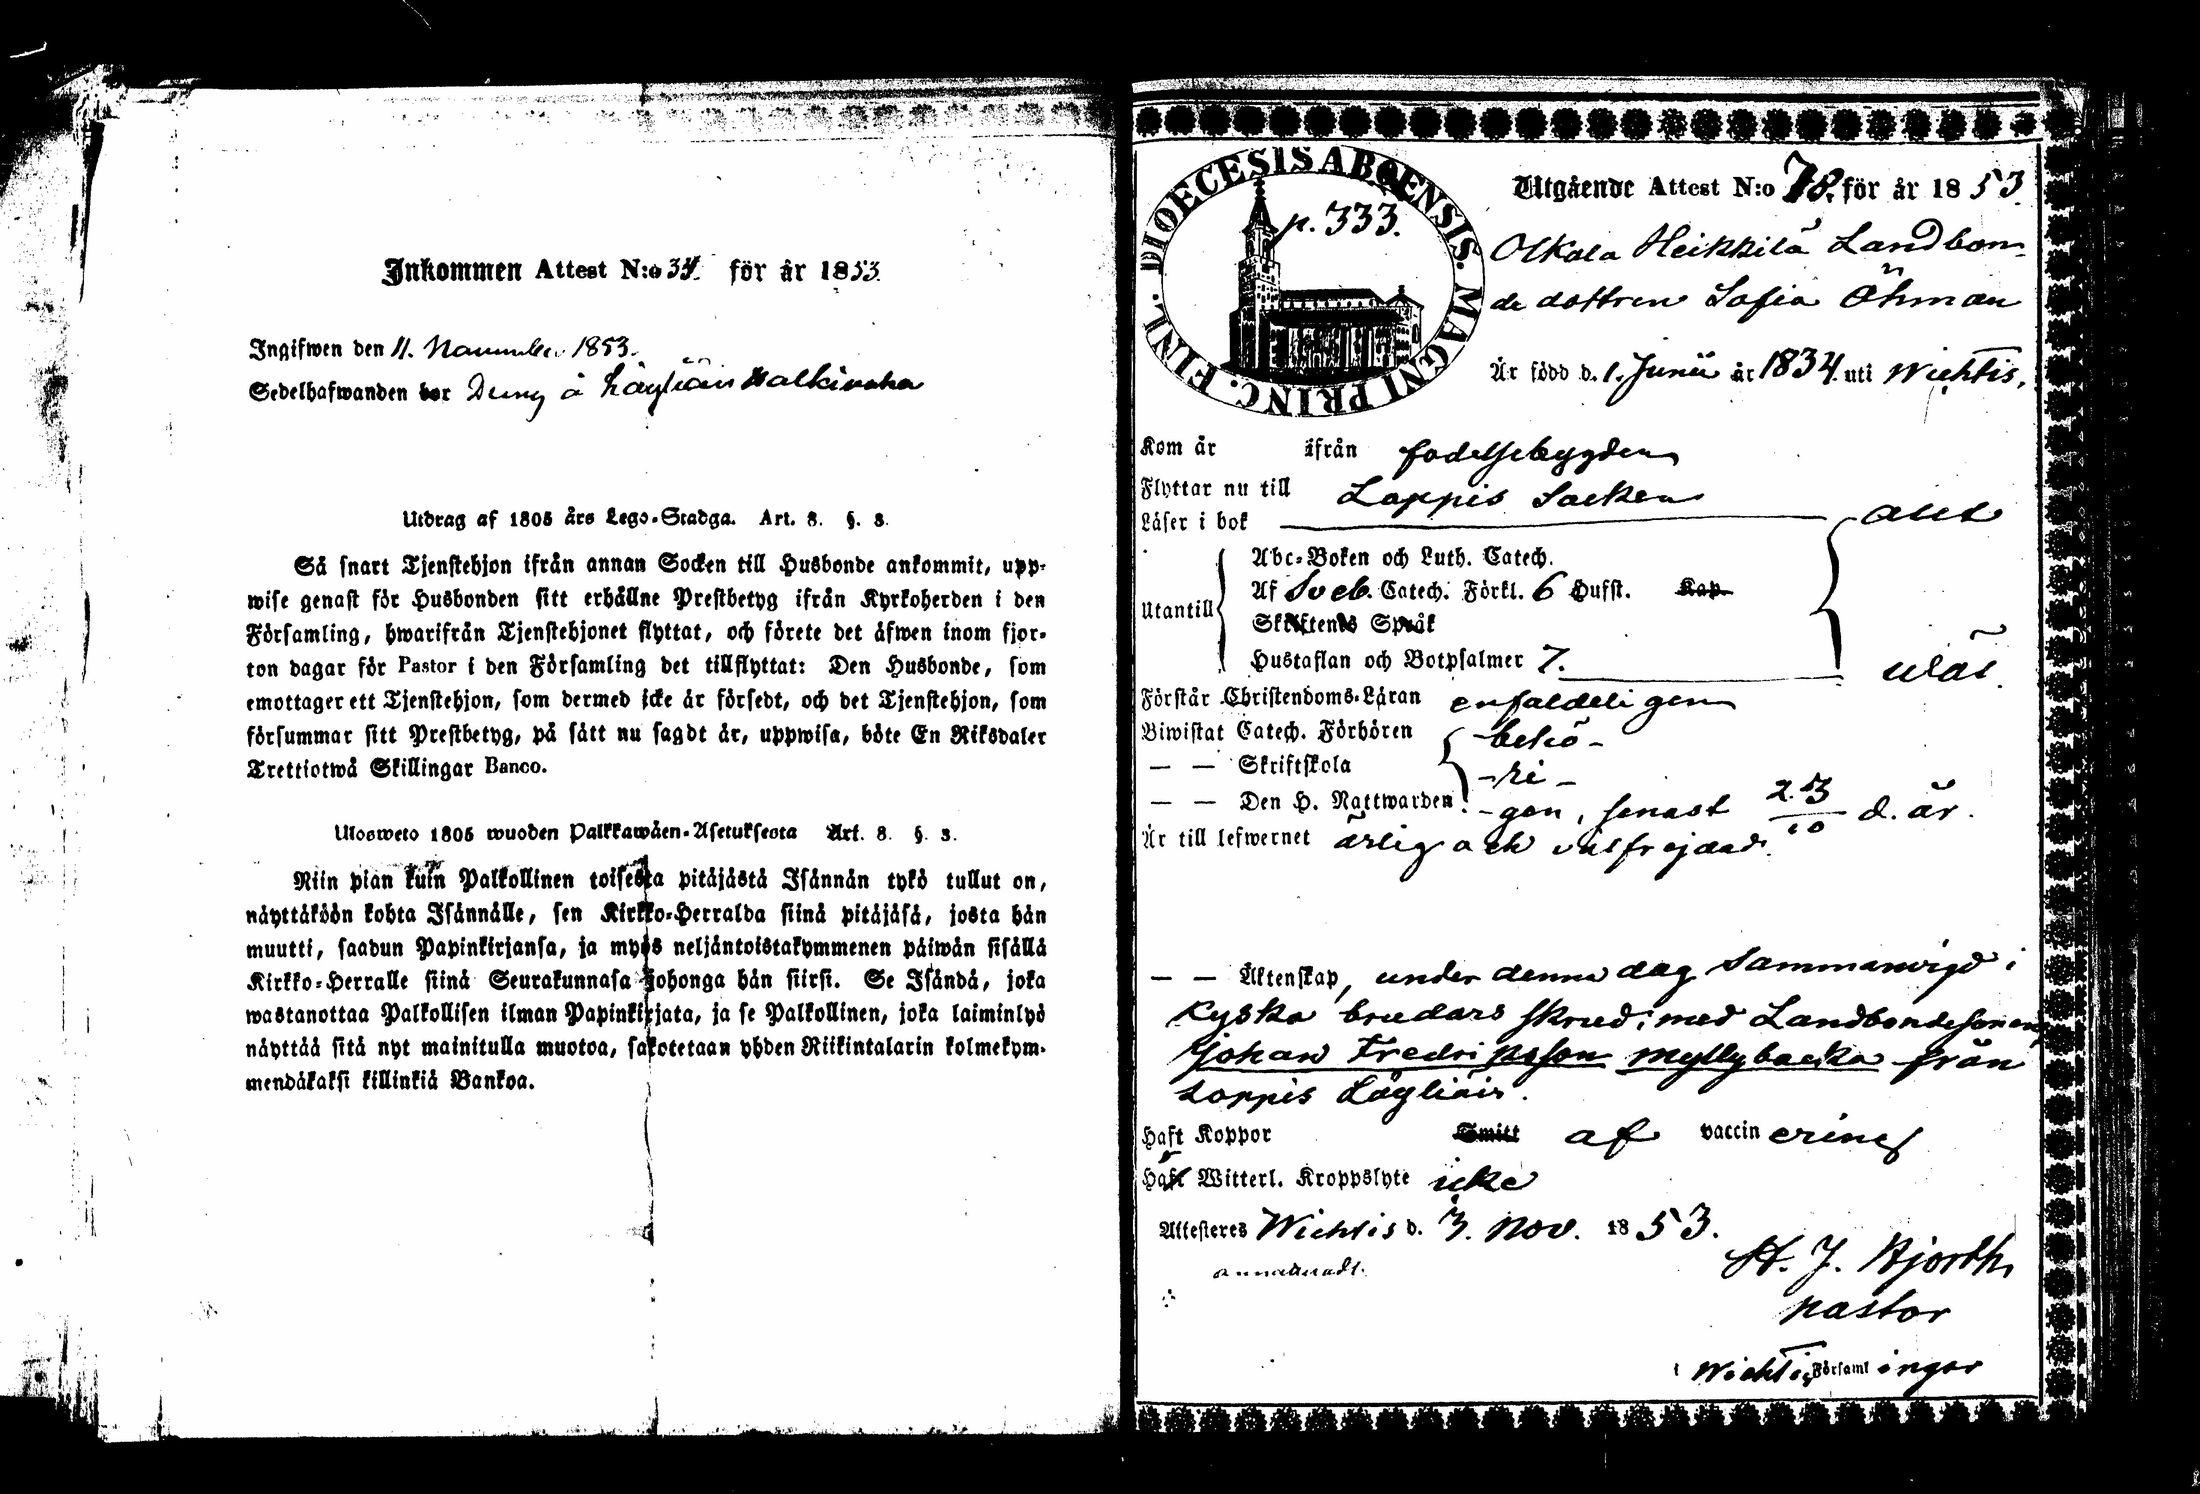 Inkommen Attest N:o 34. för år 1853.
Ingifwen den 11. November 1853.
Sedelhafwanden bor å Läyliäis
Utdrag af 1805 års Lego-Stadga. Art. 8. §. 8.
Så snart Tjenstehjon ifrån annan Socken till Husbonde ankommit, upp-
wise genast för Husbonden sitt erhållne Prestbetyg ifrån Kyrkoherden i den
Församling, hwarifrån Tjenstehjonet flyttat, och förete det äfwen inom fjor-
ton dagar för Pastor i den Församling det tillflyttat: Den Husbonde, som
emottager ett Tjenstehjon, som dermed icke är försedt, och det Tjenstehjon, som
försummar sitt Prestbetyg, på sätt nu sagdt är, uppwisa, böte En Riksdaler
Trettiotwå Skillingar Banco.
Ulosweto 1805 wuoden Palkkawäen-Asetuksesta Art. 8. §. 8.
Niin pian kuin Palkollinen toisesta pitäjästä Isännän tykö tullut on,
näyttäköön kohta Isännälle, sen Kirkko-Herralda siinä pitäjäsä, josta hän
muutti, saadun Papinkirjansa, ja myös neljäntoistakymmenen päiwän sisällä
Kirkko-Herralle siinä Seurakunnasa johonga hän siirsi. Se Isändä, joka
wastanottaa Palkollisen ilman Papinkirjata, ja se Palkollinen, joka laiminlyö
näyttää sitä nyt mainitulla muotoa, sakotetaan yhden Riikintalarin kolmekym-
mendäkaksi killinkiä Bankoa.
DIOECESIS ABOENSIS. MAGNI PRINC. FINL.
p. 333.
Utgående Attest N:o 78. för år 1853.
Olkala Heikkilä Landbon-
de dottren Sofia Öhman
Är född d. 1. Junii år 1834. uti Wichtis.
Kom år ifrån födelsebygden
Flyttar nu till Loppis Socken
Läser i bok
Utantill
Abc-Boken och Luth. Catech.
Af Sveb. Catech. Förkl. 6 Hufst. Kap.
Skriftenes Språk
Hustaflan och Botpsalmer 7.
Förstår Christendoms-Läran enfaldeligen
Biwistat Catech. Förhören behö-
— — Skriftskola -ri-
— — Den H. Nattwarden -gen, senast 23/10 d. år.
Är till lefwernet ärlig och välfrejdad.
— — Äktenskap, under denna dag Sammanvigd i
kyska brudars skrud, med Landbondesonen
Johan Fredriksson Myllybacka från
Loppis Läyliäis.
Haft Koppor Smitt af vaccinerine
Haft Witterl. Kroppslyte icke
Attesteres Wichtis d. 3. Nov. 1853.
H. J. Hjorth,
pastor
i Wichtis Församlingar